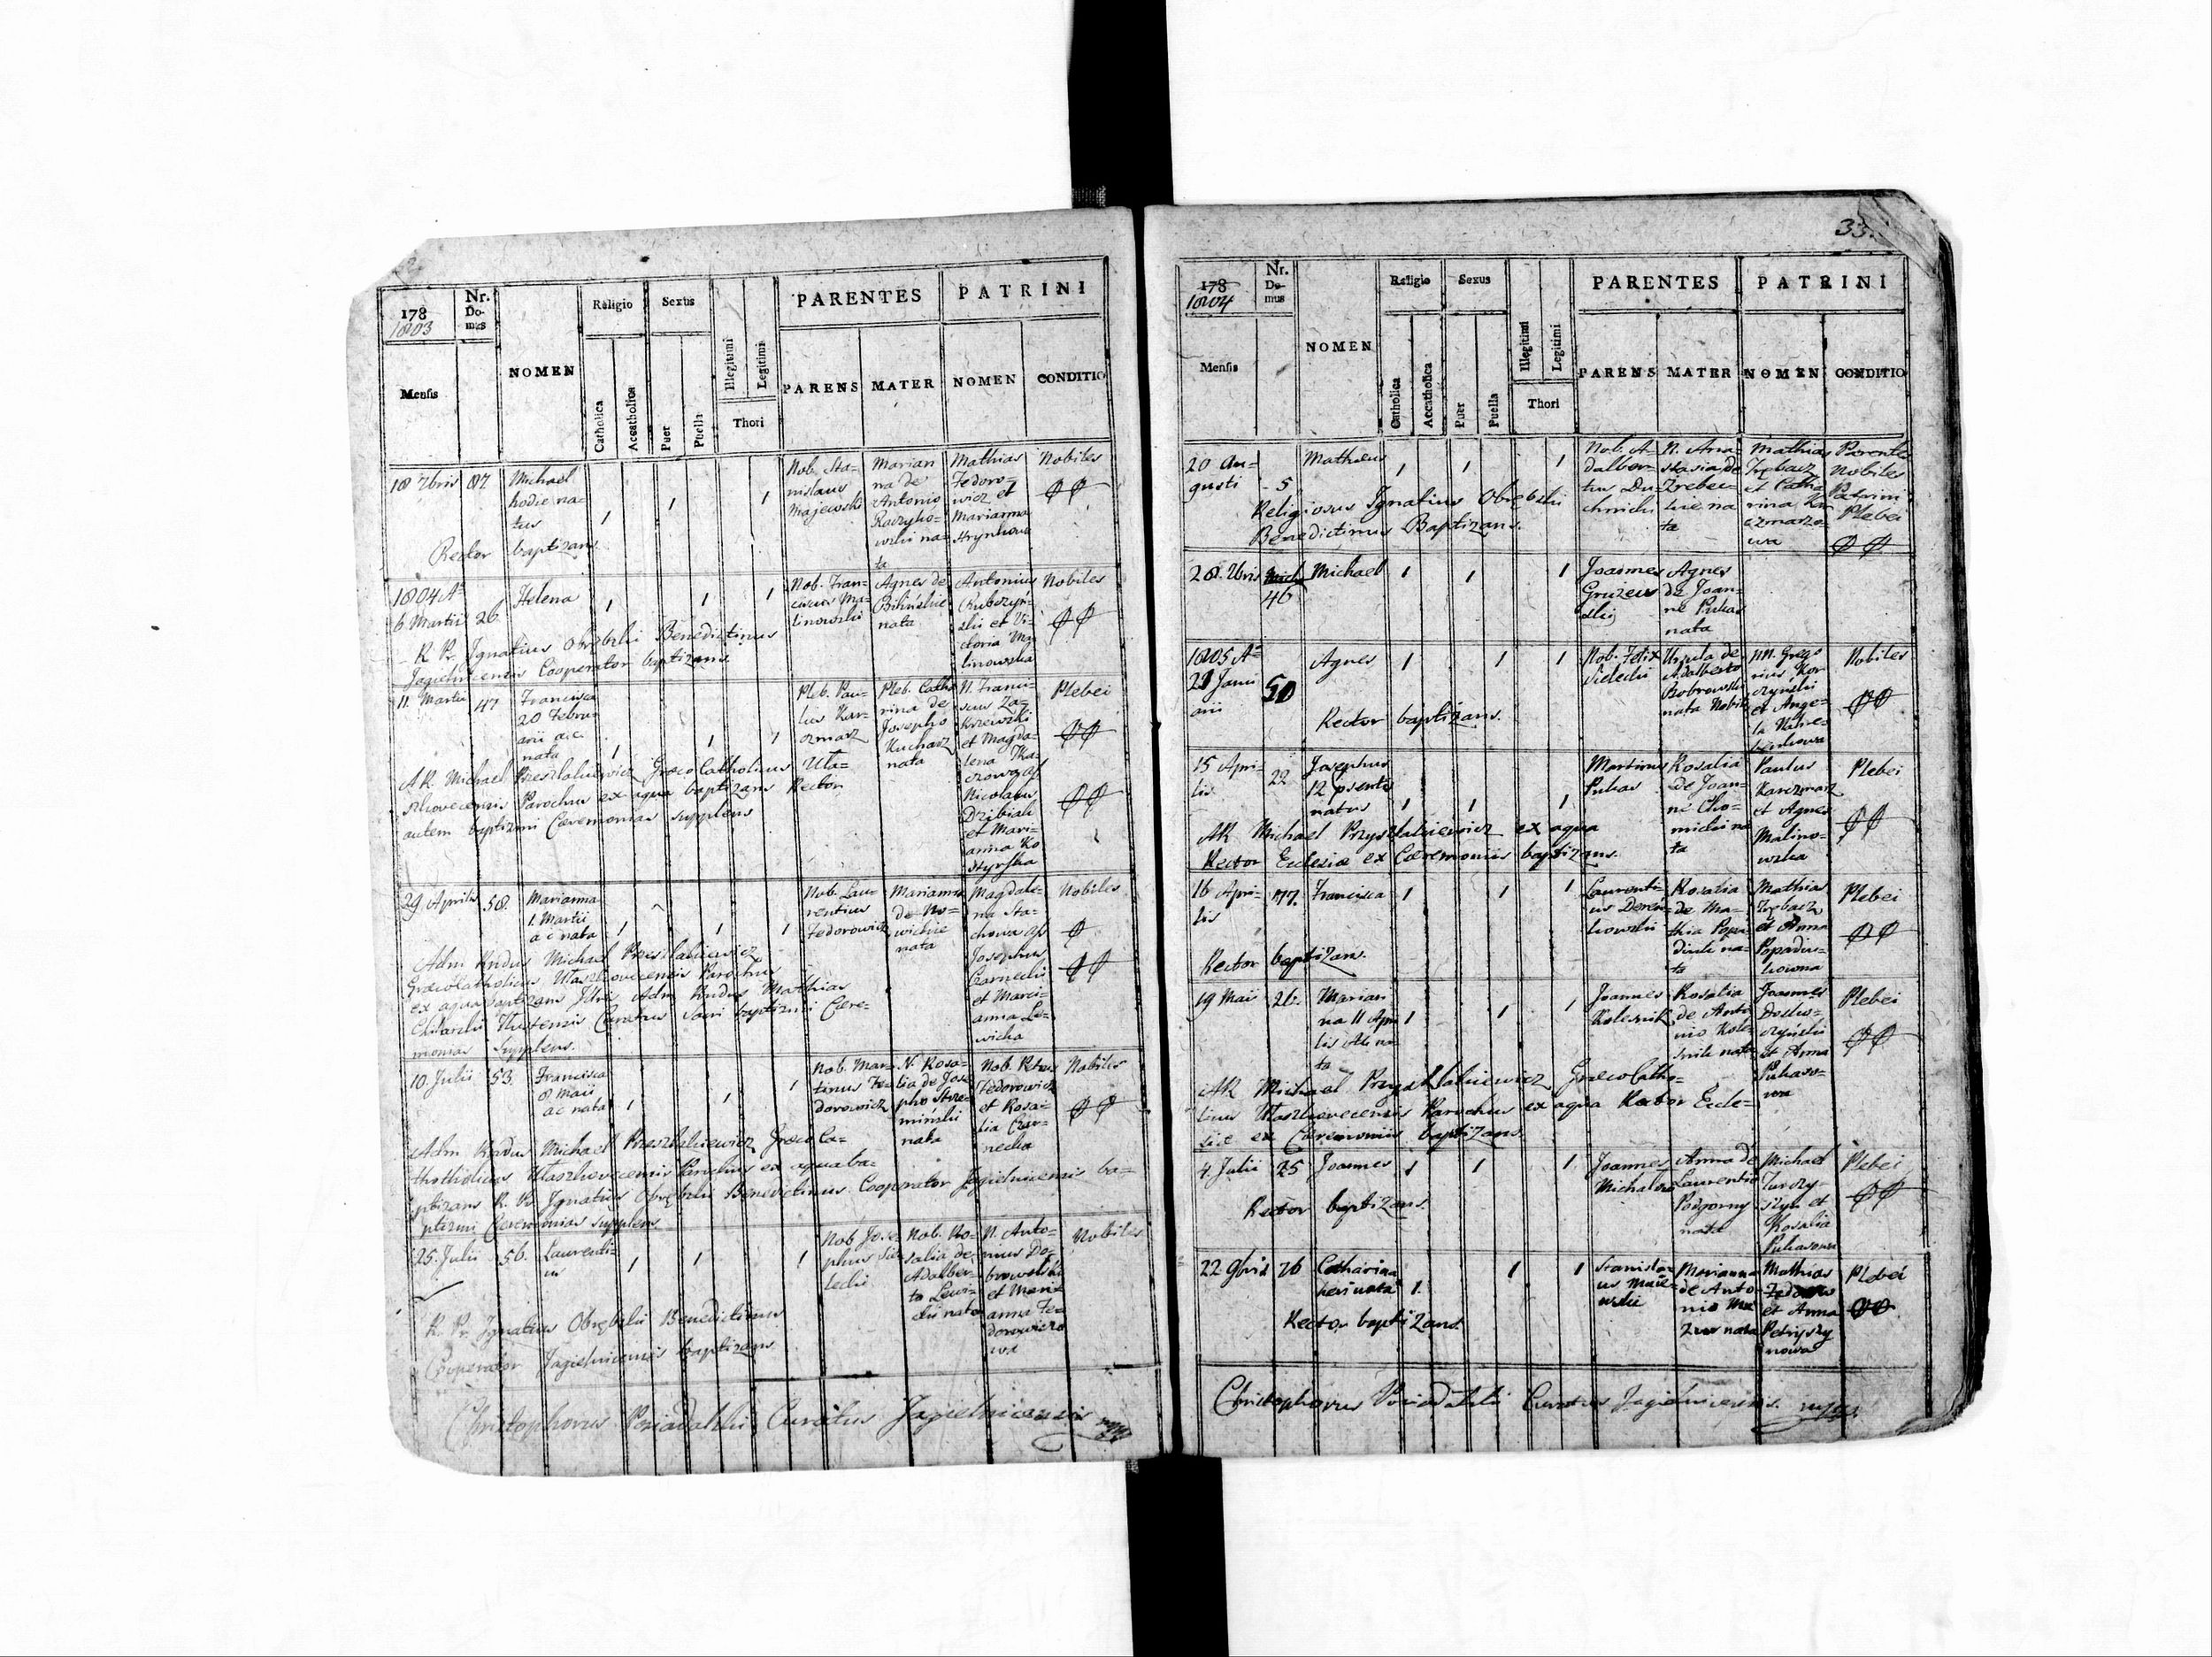 178
1803
Nr.
Do-
mus
NOMEN
Religio
Sexus
PARENTES
PATRINI
Mensis
Catholica
Accatholica
Puer
Puella
Illegitimi
Legitimi
Thori
PARENS
MATER
NOMEN
CONDITIO
18 7bris
87
Michael
hodie na-
tus
1
1
1
Nob. Sta-
nislaus
Majewski
Marian
na de
Antonio
na-
ta
Mathias
Fedoro-
wicz et
Marianna
Hrynkowa
Nobiles
Rector baptizans
1804 Ao
6 Martii
26
Helena
1
1
1
Nob. Fran-
ciscus Ma-
linowski
Agnes de
Bilińskie
nata
Antonius
et Vi-
ctoria Ma
linowska
Nobiles
R. Pr. Ignatius Obrębski Benedictinus
Jagielnicensis Cooperator baptizans
11 Martii
47
Francisca
20 Febru-
arii a.c.
nata
1
1
1
Pleb. Pau-
lus Kar-
czmarz
Pleb. Catha
rina de
Josepho
Kucharz
nata
N. Franci-
scus Za-
krzewski
et Magda-
lena Tka-
czowa
Nicolaus
Dzibiak
et Mari-
anna Ko
Plebei
AR. Michael Presztakiewicz Græco Catholicus Uła-
szkovecensis Parochus ex aqua baptizans Rector
autem baptizmi Cæremonias supplens
29 Aprilis
58.
Marianna
1. Martii
a c nata
1
1
1
Nob. Lau-
rentius
Fedorowicz
Marianna
de No-
wickie
nata
Magdale-
na Sta-
chowa
Josephus
Czarnecki
et Mari-
anna Le-
wicka
Nobiles
Adm Rndus Michael Presztakiewicz
Græco Catholicus Ułaszkovecensis Parochus
ex aqua baptizans Adm Rndus Mathias
Curatus Sacri baptizmi Cære-
monias Supplens.
10. Julii
53.
Francisca
8 Maii
a c nata
1
1
1
Nob. Mar-
tinus Fe-
dorowicz
N. Rosa-
lia de Jose
pho Strze-
miński
nata
Nob. Petrus
Fedorowicz
et Rosa-
lia Czar-
necka
Nobiles
Adm Rndus Michael Presztakiewicz Græco Ca-
tholicus Ułaszkovecensis Parochus ex aqua ba-
ptizans R. Pr. Ignatius Obrębski Benedictinus Cooperator Jagielnicensis ba-
ptizmi Cæremonias supplens
25. Julii
56.
Laurenti-
us
1
1
1
Nob Jose-
phus Sie-
lecki
Nob. Ro-
salia de
Adalber-
to Lewi-
cki nata
N. Anto-
nius Do-
browolski
et Mari-
anna Fe-
dorowiczo
wa
Nobiles
R. Pr. Ignatius Obrębski Benedictinus
Cooperator Jagielnicensis baptizans
Christophorus Poniadalski Curatus Jagielnicensis mpp
33.
178
1804
Nr.
Do-
mus
NOMEN
Religio
Sexus
PARENTES
PATRINI
Mensis
Catholica
Accatholica
Puer
Puella
Illegitimi
Legitimi
Thori
PARENS
MATER
NOMEN
CONDITIO
20 Au-
gusti
5
Matheus
1
1
1
Nob. A-
dalber-
tus Du-
chnicki
N. Ana-
stasia de
na
ta
Mathias
Trębacz
et Catha
rina Ka
czmarzo-
wa
Parentes
Nobiles
Patrini
Plebei
Religiosus Ignatius Obrębski
Benedictinus Baptizans.
28. 7bris
46
Michael
1
1
1
Joannes
Agnes
de Joan-
ne Pukas
nata
1805 Ao
21 Janu
arii
50
Agnes
1
1
1
Nob. Felix
Sielecki
Ursula de
Adalberto
Bobrowski
nata Nobilis
NN. Grego
rius Kor
czynski
et Ange-
la
Nobiles
Rector baptizans.
15 Apri-
lis
22
Josephus
12 psentis
natus
1
1
1
Martinus
Pukas
Rosalia
de Joan-
ne Cho-
micki na
ta
Paulus
Karczmarz
et Agnes
Malino-
wska
Plebei
AR Michael Przysztakiewicz ex aqua
Rector Ecclesiæ ex Cæremoniis baptizans.
16 Apri-
lis
77.
Francisca
1
1
1
Laurenti-
us
Rosalia
de Ma-
thia Popa
diuk na-
ta
Mathias
Trębacz
et Anna
Popadiu-
kowna
Plebei
Rector baptizans.
19 Maii
26.
Marian
na 11 Apri
lis
na
ta
1
1
1
Joannes
Kolesnik
Rosalia
de Anto
nio Kole-
snik nata
Joannes
et Anna
Pukaso-
wa
Plebei
AR Michael Przysztakiewicz Græco Catho-
licus Ułaszkovecensis Parochus ex aqua Rector Eccle-
siæ ex Cæremoniis baptizans.
4 Julii
25
Joannes
1
1
1
Joannes
Anna de
Laurentio
Podgorny
nata
Michael
et
Rosalia
Pukasowa
Plebei
Rector baptizans.
22 9bris
76
Catharina
heri nata
1.
1
1
Stanisla-
us
Marianna
de Anto-
nio
nata
Mathias
et Anna
Petryszy
nowa
Plebei
Rector baptizans
Christophorus Poniadalski Curatus Jagielnicensis. mpp.